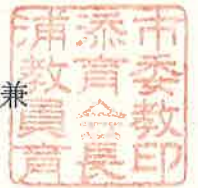 兼
浦添市
教育委
員会教
育長印